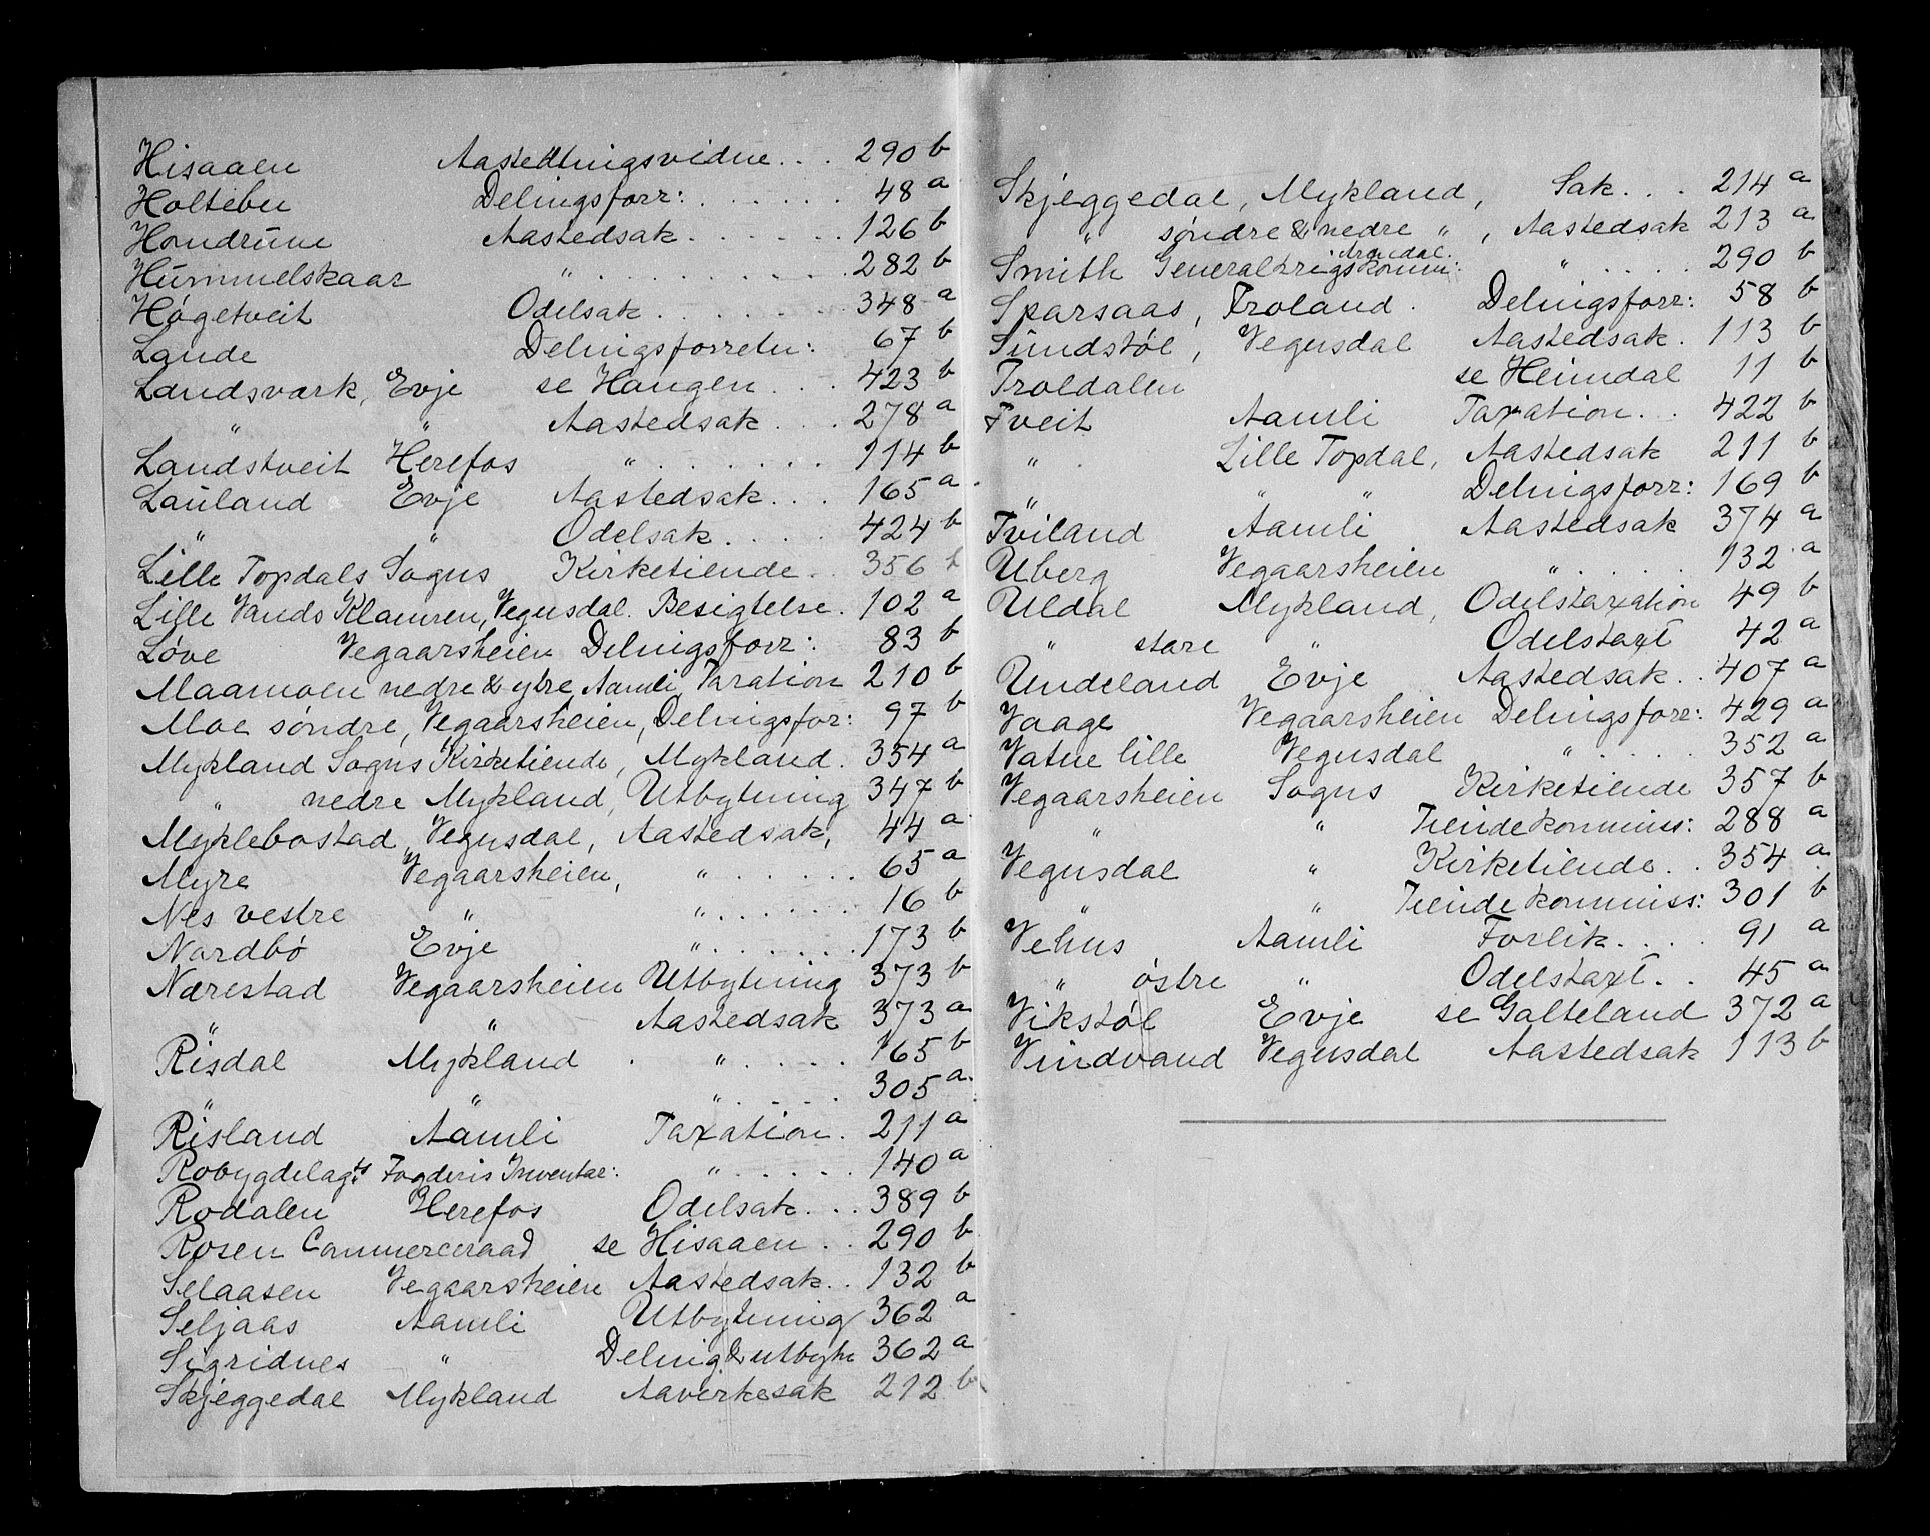 Hisaaen Aastedtingsvidne... 290 b
Holtebu Delingsforr:...... 48 a
Hondrune Aastedsak...... 126 b
Hummelskaar " .......... 282 b
Høgetveit Odelsak....... 348 a
Lande Delingsforretn: 67 b
Landsvark, Evje se Haugen... 423 b
" " Aastedsak... 278 a
Landstveit Herefos " ....... 114 b
Lauland Evje Aastedsak... 165 a
" " Odelsak.... 424 b
Lille Topdals Sogns Kirketiende.. 356 b
Lille Vands Klamren, Vegusdal. Besigtelse. 102 a
Løve Vegaarsheien Delingsforr: 83 b
Maamoen nedre & ytre, Aamli, Taxation 210 b
Moe søndre, Vegaarsheien, Delingsfor: 97 b
Mykland Sogns Kirketiende, Mykland. 354 a
" nedre Mykland, Utbytning 347 b
Myklebostad, Vegusdal, Aastedsak, 44 a
Myre Vegaarsheien, " ...... 65 a
Nes vestre " " ...... 16 b
Nordbø Evje " ...... 173 b
Nærestad Vegaarsheien Utbytning 373 b
" " Aastedsak 373 a
Risdal Mykland . " ..... 165 b
" " " ..... 305 a
Risland Aamli Taxation. 211 a
Robygdelagts Fogderis Inventar: " ..... 140 a
Rodalen Herefos Odelsak... 389 b
Rosen Commerceraad se Hisaaen.. 290 b
Selaasen Vegaarsheien Aastedsak.. 132 b
Seljaas Aamli Utbytning 362 a
Sigridnes " Deling & utbytn 362 a
Skjeggedal Mykland Aavirkesak 212 b
Skjeggedal, Mykland, Sak... 214 a
" søndre & nedre " , Aastedsak 213 a
Arendal.
Smith Generalkrigskomm: " ..... 290 b
Sparsaas, Froland. Delingsforr: 58 b
Sundstøl, Vegusdal Aastedsak. 113 b
Troldalen se Heimdal 11 b
Tveit Aamli Taxation... 422 b
" . Lille Topdal, Aastedsak 211 b
" " " Delingsforr: 169 b
Tviland Aamli Aastedsak 374 a
Uberg Vegaarsheien " ..... 132 a
Uldal Mykland, Odelstaxation 49 b
" store " Odelstaxt 42 a
Undeland Evje Aastedsak.. 407 a
Vaage Vegaarsheien Delingsforr: 429 a
Vatne lille Vegusdal " ..... 352 a
Vegaarsheien Sogns Kirketiende 357 b
" " Tiendekommiss: 288 a
Vegusdal " Kirketiende.. 354 a
" " Tiendekommiss: 301 b
Vehus Aamli Forlik.... 91 a
" østre " Odelstaxt.. 45 a
Vikstøl Evje se Galteland 372 a
Vindvand Vegusdal Aastedsak 113 b